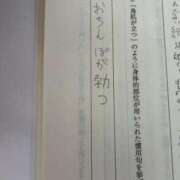 「鳥肌が立つ」のように身体的部位が用いられた慣用句を筆
おちんぽが勃つ